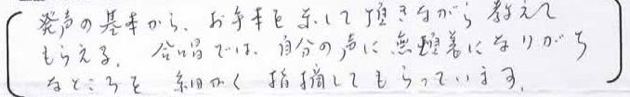 発声の基本から、お手本を示して頂きながら教えて
もらえる。合唱では、自分の声に無頓着になりがち
なところを細かく指摘してもらっています。